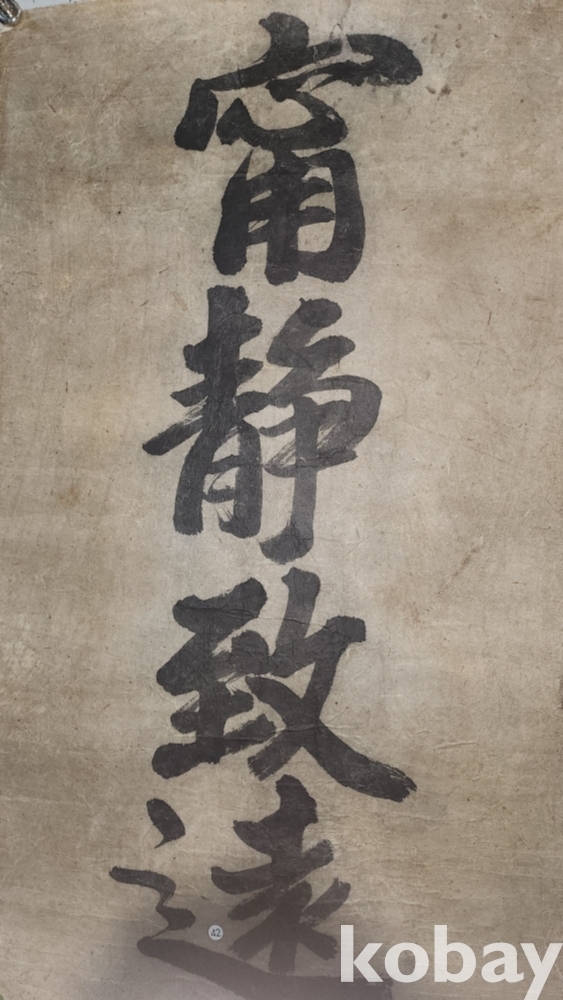 甯
静
致
遠
kobay